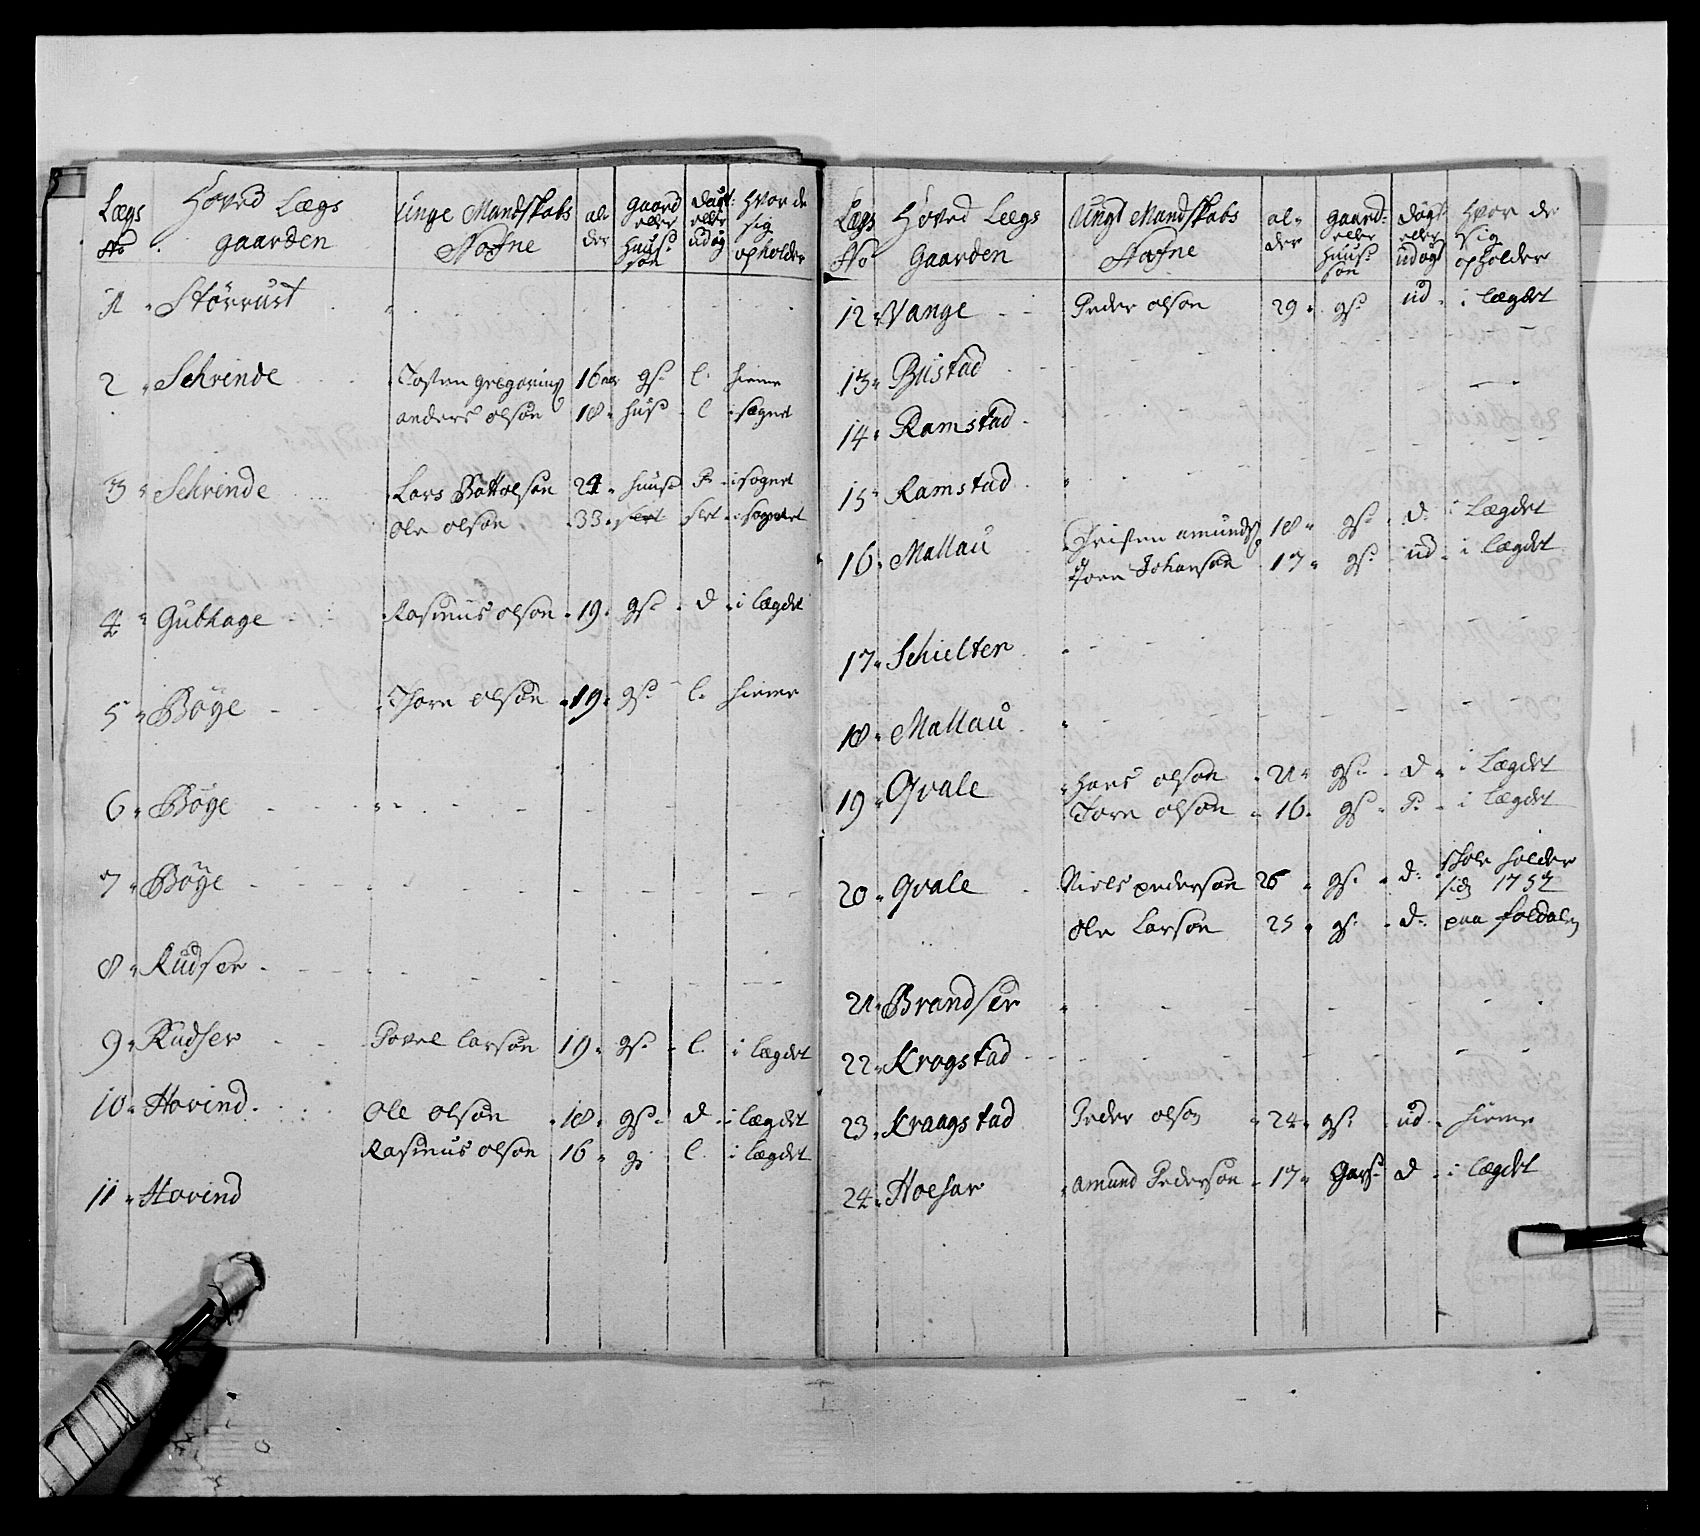 Lægs No Hoved Lægs gaarden Unge Mandskabs Nafne alder gaard eller huus søn dügt: eller udøg hvor de sig opholder
1 Störrust
2 Schrinde Tosten gregorius 16 gs: l: hieme
anders olsøn 18 hus l i sognet
3 Schrinde Lars Bottolsøn 24 huus P i sognet
Ole olsøn 33 slet slet i sognet
4 Gubhage Rasmus olsøn 19 gs: d i lægdet
5 Böye Thore olsøn 19 gs: l: hieme
6 Böye
7 Böye
8 Rudser
9 Rudser Povel larsøn 19 gs: l. i lægdet
10 Hovind Ole olsøn 18 gs: d i lægdet
Rasmus olsøn 16 g: l. i lægdet
11 Hovind
Lægs No Hoved Lægs Gaarden Ungt Mandskabs Nafne alder gaard: eller huus: søn dögt: eller udøgt hvor de sig opholder
12 Vange Peder olsøn 29 gs: ud i lægdet
13 Bustad
14 Ramstad
15 Ramstad
16 Mallau Christen amunds 18 gs: d: i Lægdet
Tore Johansøn 17 gs: ud i lægdet
17 Schielten
18 Mallau
19 Qvale Hans olsøn 21 gs: d i Lægdet
Tore olsøn 16 gs P. i lægdet
20 Qvale Niels pedersøn 26 gs: d: skole holder siden 1757
Ole Larsøn 25 gs: d: paa foldalen
21 Brandser
22 Krogstad
23 Kraagstad Peder olsøn 24 gs: ud hieme
24 Hoesar amund Pedersøn 17 Gaas: d i lægdet